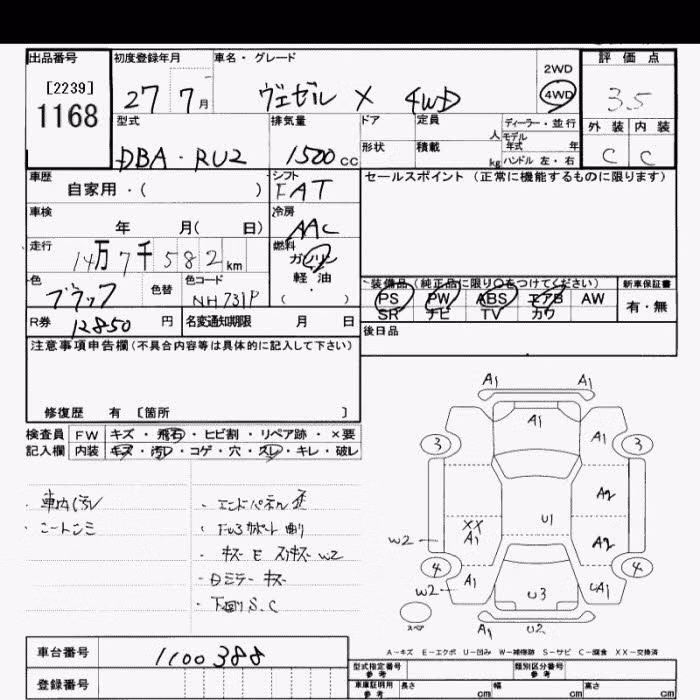 出品番号 初度登録年月 車名・グレード 評価点
[2239]
1168
27 7月 ヴェゼル X 4WD 2WD 4WD 3.5
型式 排気量 ドア 定員 人 ディーラー・並行 外装 内装
DBA・RU2 1500cc 形状 積載 kg モデル年式 年 ハンドル 左・右 C C
車歴 シフト セールスポイント（正常に機能するものに限ります）
自家用・( ) FAT
車検 冷房
年 月( 日) AAC
走行 燃料
14万7千582km ガソリン
軽油
( )
色 色替 色コード 装備品（純正品に限り○をつけてください） 新車保証書
ブラック NH731P PS PW ABS エアB AW 有・無
SR ナビ TV カワ
R券 12850円 名変通知期限 月 日 後日品
注意事項申告欄（不具合内容等は具体的に記入して下さい）
修復歴 有 〔箇所 〕
検査員 FW キズ・飛石・ヒビ割・リペア跡・×要
記入欄 内装 キズ・汚レ・コゲ・穴・スレ・キレ・破レ
・車内汚レ ・エンドパネル歪
・Fwサポート曲り
・キズ E スリキズ W2
・Dミラーキズ
・下回りS.C
A1 A1
A1 A1
3 3
A2
XX
A1 U1 A2
W2
4 4
A1 U3 UA1
W2
スペア A1 U2
A-キズ E-エクボ U-凹み W-補修跡 S-サビ C-腐食 XX-交換済
車台番号 1100388
登録番号
型式指定番号 参考 類別区分番号 参考
車庫証明用 参考 長さ cm 幅 cm 高さ cm